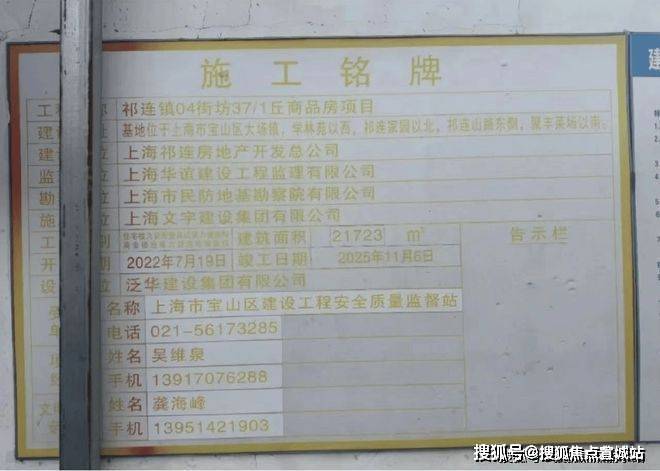 施工铭牌
工 称 祁连镇04街坊37/1丘商品房项目
建 址 基地位于上海市宝山区大场镇,学林苑以西,祁连家园以北,祁连山路东侧,聚丰菜场以南。
建 位 上海祁连房地产开发总公司
监 位 上海华谊建设工程监理有限公司
勘 位 上海市民防地基勘察院有限公司
施 位 上海文宇建设集团有限公司
工 别 建筑面积 21723 m² 告示栏
开 期 2022年7月19日 竣工日期 2025年11月6日
设 位 泛华建设集团有限公司
名称 上海市宝山区建设工程安全质量监督站
单 电话 021-56173285
项 姓名 吴维泉
经 手机 13917076288
文 姓名 龚海峰
手机 13951421903
建
搜狐号@搜狐焦点宣城站